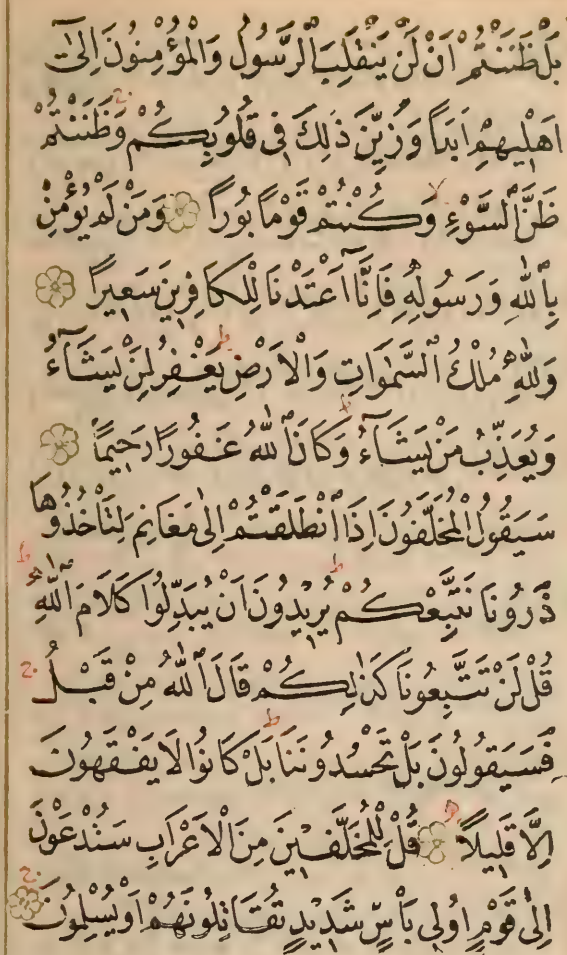 بَلْ ظَنَنْتُمْ اَنْ لَنْ يَنْقَلِبَ الرَّسُولُ وَالْمُؤْمِنُونَ اِلٰٓى
اَهْلِيهِمْ اَبَدًا وَزُيِّنَ ذٰلِكَ فِى قُلُوبِكُمْ وَظَنَنْتُمْ
ظَنَّ السَّوْءِ وَكُنْتُمْ قَوْمًا بُورًا وَمَنْ لَمْ يُؤْمِنْ
بِاللّٰهِ وَرَسُولِهِ فَاِنَّٓا اَعْتَدْنَا لِلْكَافِرِينَ سَعِيرًا
وَلِلّٰهِ مُلْكُ السَّمٰوَاتِ وَالْاَرْضِ ط يَغْفِرُ لِمَنْ يَشَٓاءُ
وَيُعَذِّبُ مَنْ يَشَٓاءُ ط وَكَانَ اللّٰهُ غَفُورًا رَحِيمًا
سَيَقُولُ الْمُخَلَّفُونَ اِذَا انْطَلَقْتُمْ اِلٰى مَغَانِمَ لِتَأْخُذُوهَا
ذَرُونَا نَتَّبِعْكُمْ ط يُرِيدُونَ اَنْ يُبَدِّلُوا كَلَامَ اللّٰهِ ط
قُلْ لَنْ تَتَّبِعُونَا كَذٰلِكُمْ قَالَ اللّٰهُ مِنْ قَبْلُ ج
فَسَيَقُولُونَ بَلْ تَحْسُدُونَنَا ط بَلْ كَانُوا لَا يَفْقَهُونَ
اِلَّا قَلِيلًا قُلْ لِلْمُخَلَّفِينَ مِنَ الْاَعْرَابِ سَتُدْعَوْنَ
اِلٰى قَوْمٍ اُولِى بَأْسٍ شَدِيدٍ تُقَاتِلُونَهُمْ اَوْ يُسْلِمُونَ ج